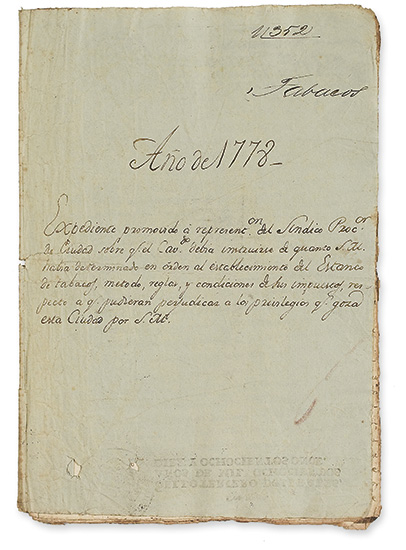 N 352
Tabacos
Año de 1778
Expediente promovido à represent.on del Síndico Proc.r
de Ciudad sobre q.e el Cav.do debia instruirse de quanto S.M.
havia determinado en órden al establecimiento del Estanco
de tabacos, método, reglas, y condiciones de sus impuestos, res-
pecto a q.e pudieran perjudicar a los privilegios q.e goza
esta Ciudad por S.M.
OCHOCIENTOS ONCE